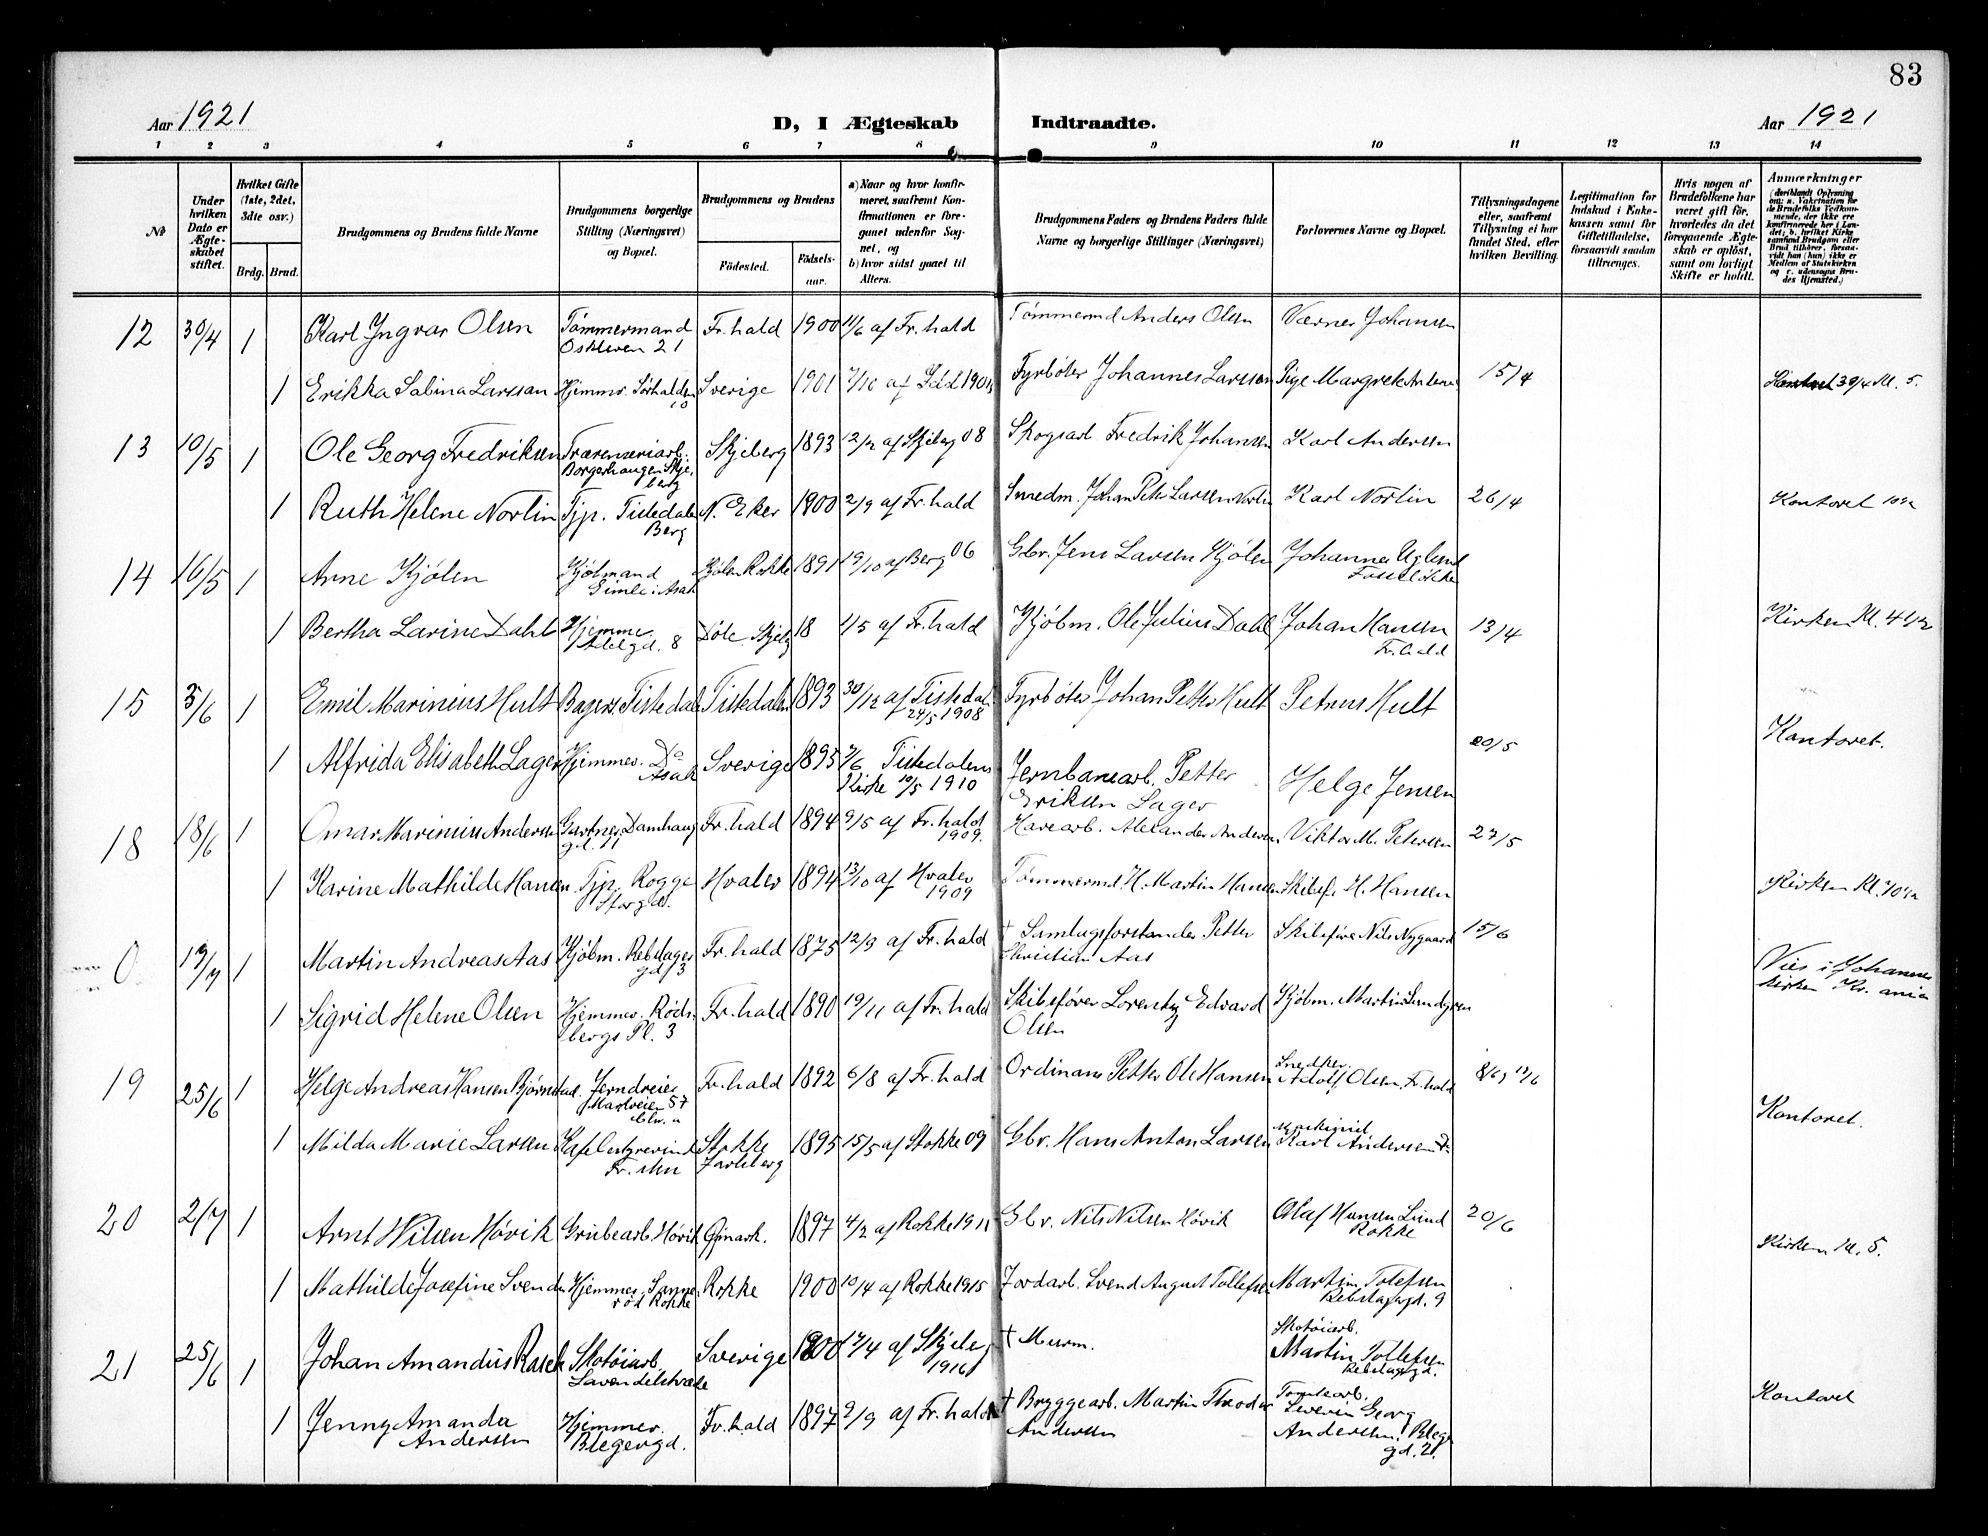 83
Aar 1921 D, I Ægteskab Indtraadte. Aar 1921
1 2 3 4 5 6 7 8 9 10 11 12 13 14
No
Under hvilken Dato er Ægteskabet stiftet.
Hvilket Gifte (1ste, 2det, 3die osv.)
Brdg. Brud.
Brudgommens og Brudens fulde Navne
Brudgommens borgerlige Stilling (Næringsvei) og Bopæl.
Brudgommens og Brudens
Fødested. Fødsels-aar.
a) Naar og hvor konfirmeret, saafremt Konfirmationen er foregaaet udenfor Sognet, og
b) hvor sidst gaaet til Alters.
Brudgommens Faders og Brudens Faders fulde Navne og borgerlige Stillinger (Næringsvei)
Forlovernes Navne og Bopæl.
Tillysningsdagene eller, saafremt Tillysning ei har fundet Sted, efter hvilken Bevilling.
Legitimation for Indskud i Enkekassen samt for Giftetilladelse, forsaavidt saadan tiltrænges.
Hvis nogen af Brudefolkene har været gift før, hvorledes da det foregaaende Ægteskab er opløst, samt om lovligt Skifte er holdt.
Anmærkninger
12 30/4 1 Karl Ingvar Olsen Tømmermand Oskleven 21 Fr.hald 1900 11/6 af Fr.hald Tømmermd Anders Olsen Værner Johansen
1 Erikka Sabina Larsson Hjemmev. Sørhalden 10 Sverige 1901 7/10 af Fyrbøter Johannes Larsson Pige Margrete 15/4 30/4 Kl. 5.
13 10/5 1 Ole Georg Fredriksen Borgerhaugen Skjeberg Skjeberg 1893 12/2 af Skjeberg 08 Skogsarb. Fredrik Johansen Karl Andersen
1 Ruth Helene Norlin Tjp. Tistedalen Berg N. Eker 1900 2/9 af Fr.hald Smedm. Johan Peter Larsen Norlin Karl Norlin 26/4 Kontoret
14 16/5 1 Arne Kjølen Kjøbmand Gimle i Asak Kjølen Rokke 1891 19/10 af Berg 06 Gbr. Jens Larsen Kjølen Johannes
1 Bertha Larine Dahl Hjemme. Adelgd. 8 Skjebg 18 1/5 af Fr.hald Kjøbm. Ole Julius Dahl Johan Hansen Fr.hald 13/4 Kirken Kl. 4 1/2
15 5/6 1 Emil Marinius Hult Bagers. Tistedal Tistedalen 1893 30/12 af Tistedal. 24/5 1908 Fyrbøter Johan Petter Hult Petrus Hult
1 Alfrida Elisabeth Lager Hjemmev. Do Asak Sverige 1895 7/6 Tistedalens Kirke 10/5 1910 Jernbanearb. Petter Eriksen Lager Helge Jensen 20/5 Kontoret.
18 18/6 1 Omar Marinius Andersen Gartner Damhaug gd. 11 Fr.hald 1894 9/5 af Fr.hald 1909. Havearb. Alexander Andersen Viktor M. Petersen 27/5
1 Karine Mathilde Hansen Tjp. Rogge Storgd. Hvaler 1894 13/10 af Hvaler 1909 Tømmermd. H. Martin Hansen Skibsf. H. Hansen Kirken Kl.
0 19/7 1 Martin Andreas Aas Kjøbm. Rebslager gd. 3 Fr.hald 1875 12/3 af Fr.hald † Samlagsforstander Petter Christian Aas Skibsføre Nils Nygaard 15/6
1 Sigrid Helene Olsen Hjemmev. Rødsbergs Pl. 3 Fr.hald 1890 19/11 af Fr.hald Skibsfører Lorentz Edvard Olsen Kjøbm. Martin Lundgren Vies i Johannes kirken Kr.ania
19 25/6 1 Helge Andreas Hansen Bjørnstad. Jerndreier Fr.hald 1892 6/8 af Fr.hald Ordinans Petter Ole Hansen Snedker Adolf Olsen Fr.hald
1 Milda Marie Larsen Kafebestyrerinde Stokke Jarlsberg 1895 15/5 af Stokke 09 Gbr. Hans Anton Larsen Karl Andersen Kontoret.
20 2/7 1 Arnt Nilsen Høvik Grubearb. Høvik 1897 4/2 af Rokke 1911 Gbr. Nils Nilsen Høvik Olaf Hansen Lund Rokke 20/6
1 Mathilde Josefine Svendsen Hjemmev. Sannerød Rokke Rokke 1900 10/4 af Rokke 1915 Jordarb. Svend August Tollefsen Martin Tolefsen Rebslagergd. 9 Kirken Kl. 5.
21 25/6 1 Johan Amandus Rasch Skotøiarb. Lavendelstræde Sverige 1900 17/4 af Skjeberg 1916 † Murm. Skotøiarb. Martin Tollefsen Rebslagergd.
1 Jenny Amanda Andersen Hjemmev. Blegergd. Fr.hald 1897 2/9 af Fr.hald † Bryggearb. Martin Theodor Andersen Tomtearb. Severin Georg Andersen. Blegergd. 21 Kontoret